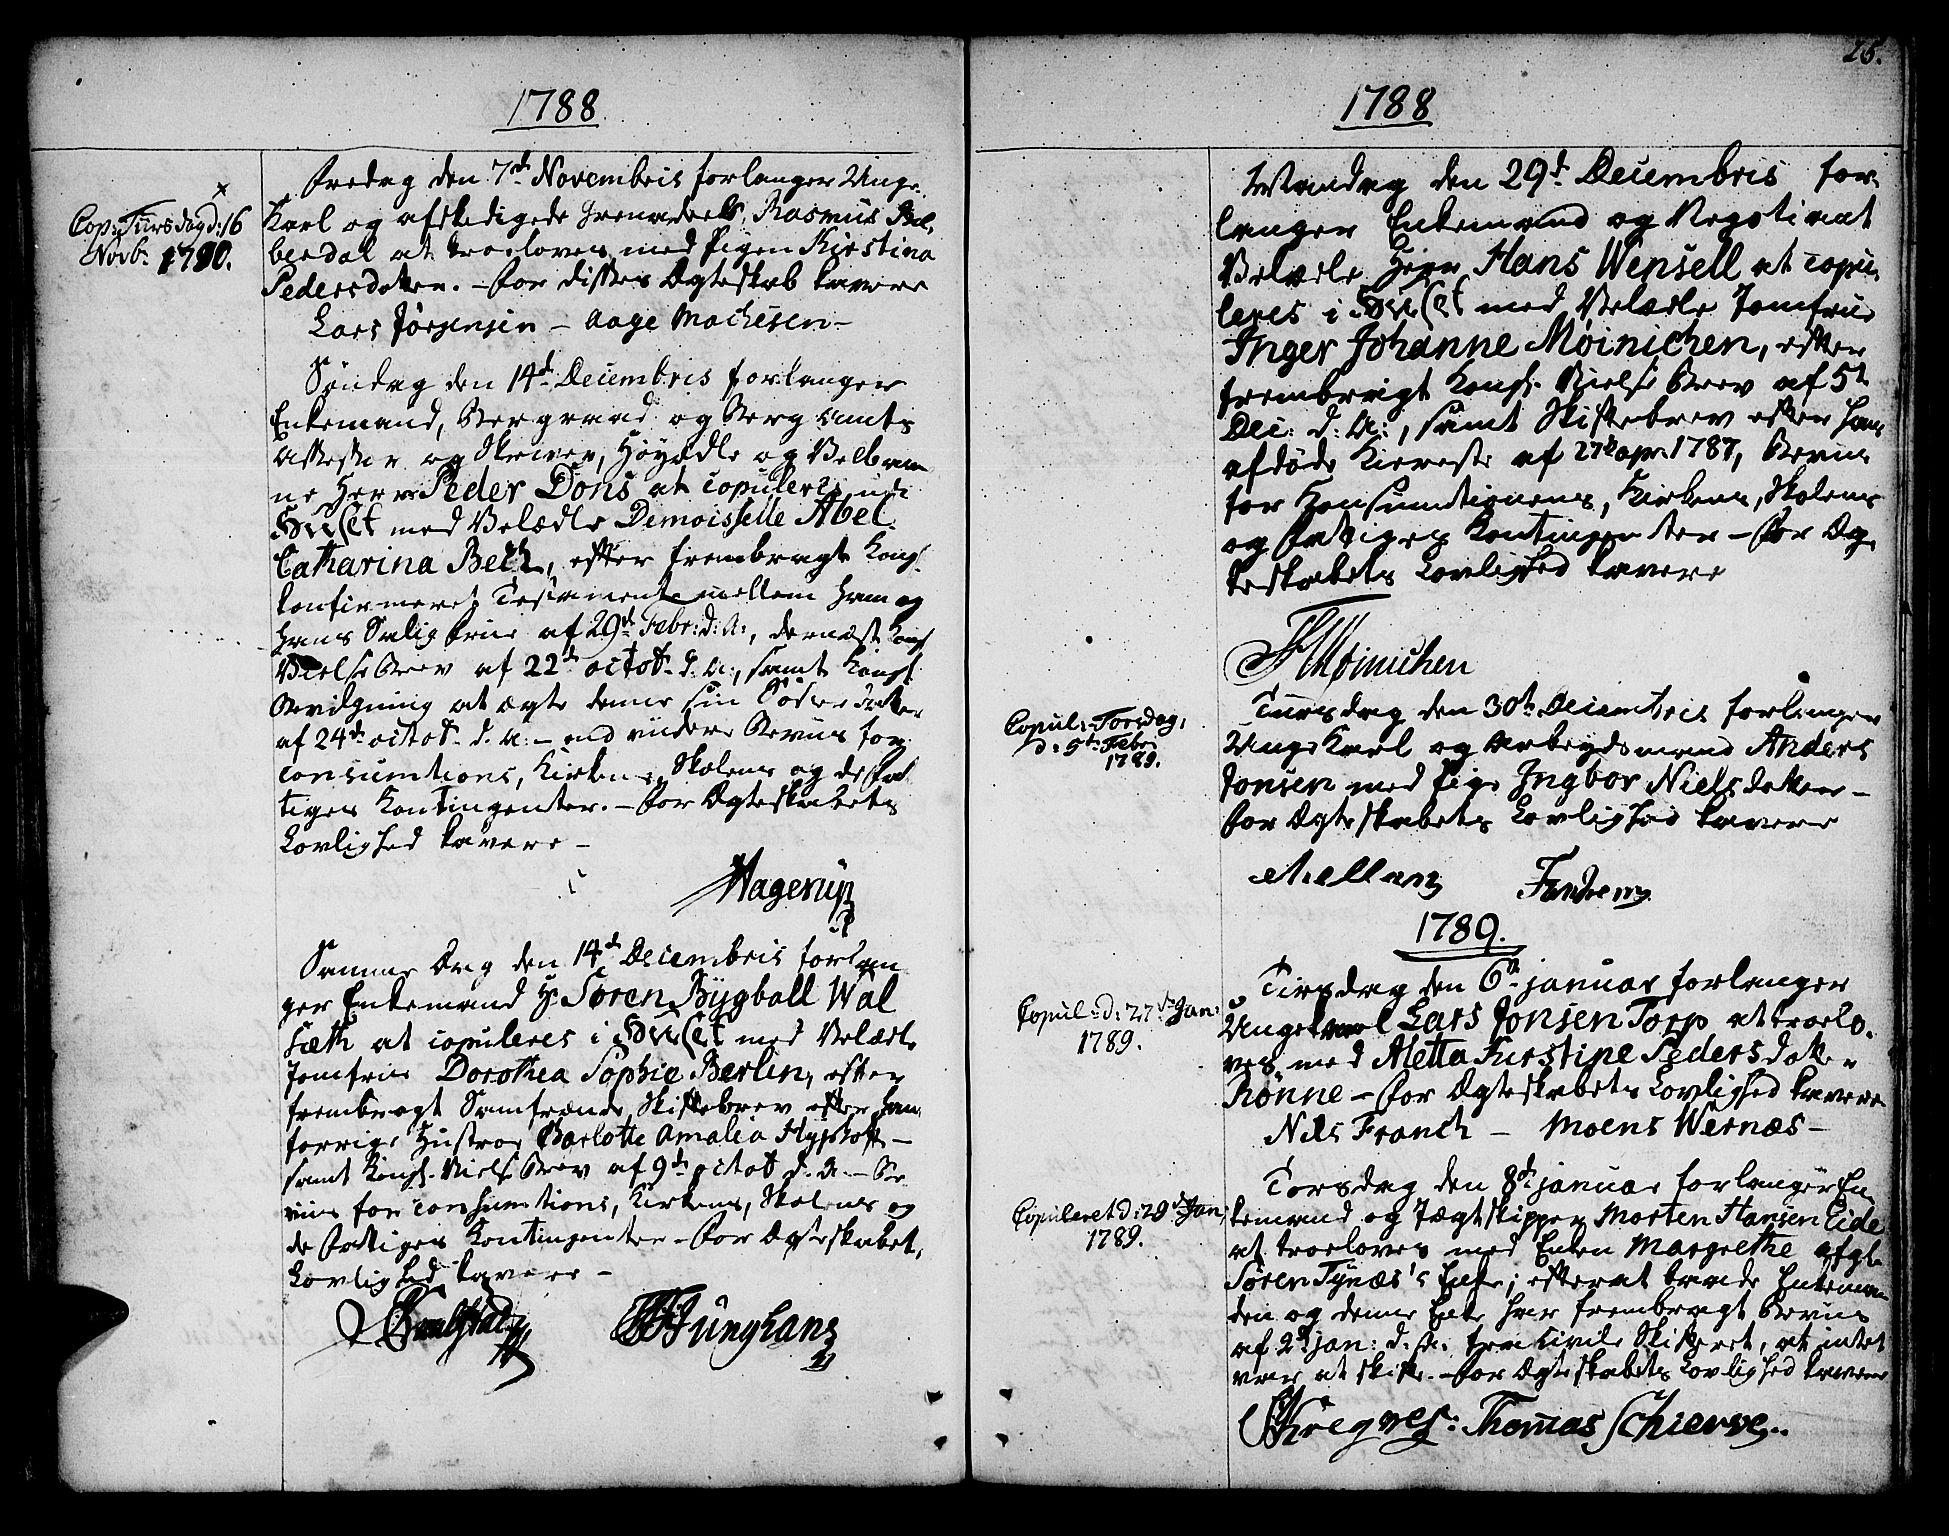 1788
Cop: Tiirsdag d: 16
Novb: 1790.
Fredag den 7de Novembris forlanger Unge
Karl og afskedigede Grenadeer, Rasmus
berdal at troeloves med Pigen Kirstina
Pedersdatter. – For disses Ægteskab kavere
Lars Jørgensen – Aage Machesen –
Søndag den 14de Decembris forlanger
Enkemand, Bergraad og Berg Amts
Assessor og Skriver, Høyædle og Velbaar
ne Herr Peder Dons at copuleres udi
Huuset med Velædle Demoisselle Abel
Catharina Bech, efter frembragt Kongl.
konfirmeret Testamente mellem Ham og
hans Salig Frue af 29de Febr: d: A:, dernæst Kongl
Vielse Brev af 22de octob. d. A:, samt Kongl.
Bevilgning at ægte denne sin Sødskendebarn
af 24de octob. d. A: – end videre Beviis for
Consumtions, Kirkens, Skolens og de Fat
tiges Kontingenter. – For Ægteskabets
Lovlighed kavere –
Hagerup
Samme Dag den 14de Decembris forlan
ger Enkemand Hr Søren Bygball Wal
seth at copuleres i Huuset med Velædle
Jomfrue Dorothea Sophie Berlin, efter
frembragt Samfrænde Skiftebrev efter Han,
forrige Hustroe Barlotte Amalia –
samt Kongl. Vielse Brev af 9de octob d. A. – Be
viis for Consumtions, Kirkens, Skolens og
de Fattiges Kontingenter – For Ægteskabet,
Lovlighed kavere –
Junghans
26.
1788
Mandag den 29de Decembris for
langer Enkemand og Negotiant
Velædle Herr Hans Wensell at copu
leres i Huuset med Velædle Jomfrue
Inger Johanne Møinichen, efter
frembragt Kongl. Vielse Brev af 5te
Dec: d: A:, samt Skiftebrev efter Hans
afdøde Kiereste af 27de apr. 1787, Beviis
for Konsumtionens, Kirkens, Skolens
og Fattiges Kontingenter – For Æg
teskabets Lovlighed kavere
Møinichen
Copul: Torsdag,
d: 5te Febr.
1789.
Tiirsdag den 30te Decembris forlanger
Unge Karl og Arbeydsmand Anders
Jonsen med Pige Ingbor Nielsdatter –
For Ægteskabets Lovlighed kavere
1789.
Copul: d: 27de Jan:
1789.
Tirsdag den 6te januar forlanger
Ungekarl Lars Jonsen Torp at troelo
ves med Aletta Kirstine Pedersdatter
Rønne – For Ægteskabets Lovlighed kavere
Nils Franch – Moens Wernæs –
Copuleret d: 29de Jan,
1789.
Torsdag den 8de januar forlanger En
kemand og Jægtskipper Morten Hansen Eide
at troeloves med Enken Margrethe afgl.
Søren Tynæs's Enke; efterat baade Enkeman
den og denne Enke har frembragt Beviis
af 2de jan: d. A. fra Civile Skifteret, at intet
var at skifte. – For Ægteskabets Lovlighed kavere
Thomas Schierve